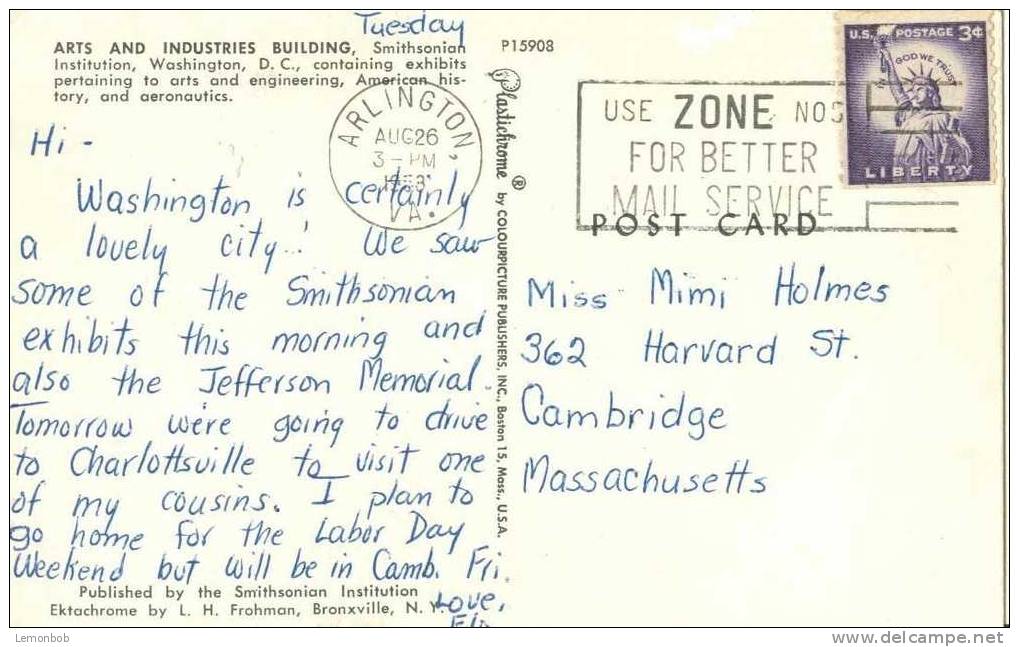 Tuesday
ARTS AND INDUSTRIES BUILDING, Smithsonian
Institution, Washington, D. C., containing exhibits
pertaining to arts and engineering, American his-
tory, and aeronautics.
Hi -
Washington is certainly
a lovely city! We saw
some of the Smithsonian
exhibits this morning and
also the Jefferson Memorial.
Tomorrow we're going to drive
to Charlottsville to visit one
of my cousins. I plan to
go home for the Labor Day
Weekend but will be in Camb. Fri.
Love,
Published by the Smithsonian Institution
Ektachrome by L. H. Frohman, Bronxville, N. Y.
P15908
Plastichrome ® by COLOURPICTURE PUBLISHERS, INC., Boston 15, Mass., U.S.A.
ARLINGTON,
AUG 26
3-PM
VA.
USE ZONE NOS
FOR BETTER
MAIL SERVICE
U.S. POSTAGE 3¢
IN GOD WE TRUST
LIBERTY
POST CARD
Miss Mimi Holmes
362 Harvard St.
Cambridge
Massachusetts
Lemonbob
www.delcampe.net